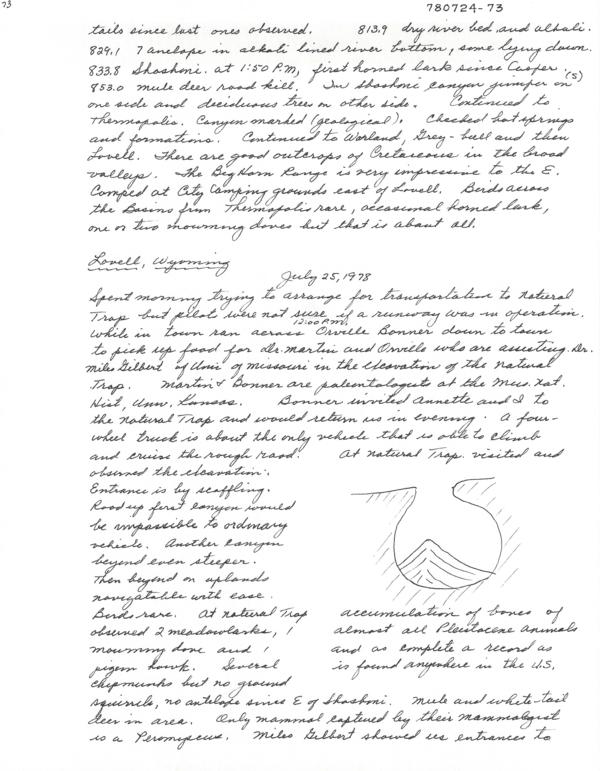 73
780724-73
tails since last ones observed. 813.9 dry river bed and alkali.
829.1 7 anelope in alkali lined river bottom, some lying down.
833.8 Shoshoni. at 1:50 P.M, first horned lark since Casper.
853.0 mule deer road kill. In Shoshoni canyon juniper on (S)
one side and deciduous trees on other side. Continued to
Thermopolis. Canyon marked (geological). Checked hot springs
and formations. Continued to Worland, Grey-bull and then
Lovell. There are good outcrops of Cretaceous in the broad
valleys. The Big Horn Range is very impressive to the E.
Camped at City Camping grounds east of Lovell. Birds across
the Basins from Thermopolis rare, occasional horned lark,
one or two mourning doves but that is about all.
Lovell, Wyoming
July 25, 1978
Spent morning trying to arrange for transportation to natural
Trap but pilots were not sure if a runway was in operation.
12:00 P.M.
While in town ran across Orville Bonner down to town
to pick up food for Dr. Martin and Orville who are assisting Dr.
Miles Gilbert of Univ of Missouri in the excavation of the natural
Trap. Martin & Bonner are paleontologists at the Mus. Nat.
Hist, Univ. Kansas. Bonner invited Annette and I to
the natural Trap and would return us in evening. A four-
wheel truck is about the only vehicle that is able to climb
and cruise the rough road. At natural Trap visited and
observed the excavation.
Entrance is by scaffling.
Road up first canyon would
be impassible to ordinary
vehicle. Another canyon
beyond even steeper.
Then beyond on uplands
navigatable with ease.
Birds rare. At natural Trap
observed 2 meadowlarks, 1
mourning dove and 1
pigeon hawk. Several
chipmunks but no ground
accumulation of bones of
almost all Pleistocene animals
and as complete a record as
is found anywhere in the U.S.
squirrels, no antelope since E of Shoshoni. Mule and white-tail
deer in area. Only mammal captured by their mammalogist
is a Peromyscus. Miles Gilbert showed us entrances to